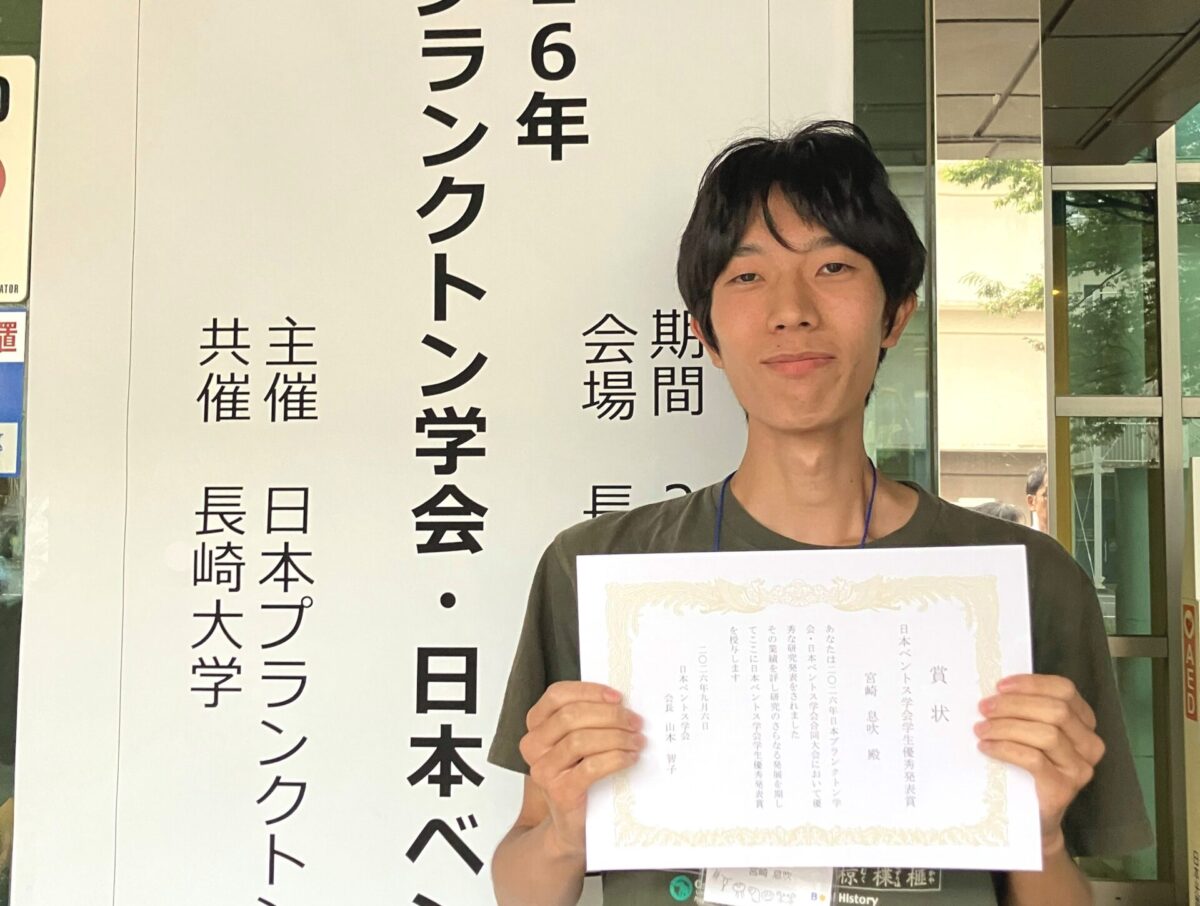 26年
プランクトン学会・日本ベン
期間 2
会場 長
主催 日本プランクトン
共催 長崎大学
賞状
日本ベントス学会学生優秀発表賞
宮崎 息吹 殿
あなたは二〇二六年日本プランクトン学
会・日本ベントス学会合同大会において優
秀な研究発表をされました
その業績を評し研究のさらなる発展を期し
てここに日本ベントス学会学生優秀発表賞
を授与します
二〇二六年九月六日
日本ベントス学会
会長 山本 智子
宮崎 息吹
History
AED
ATOR
置